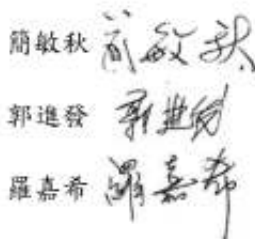 簡敏秋 簡敏秋
郭進發 郭進發
羅嘉希 羅嘉希